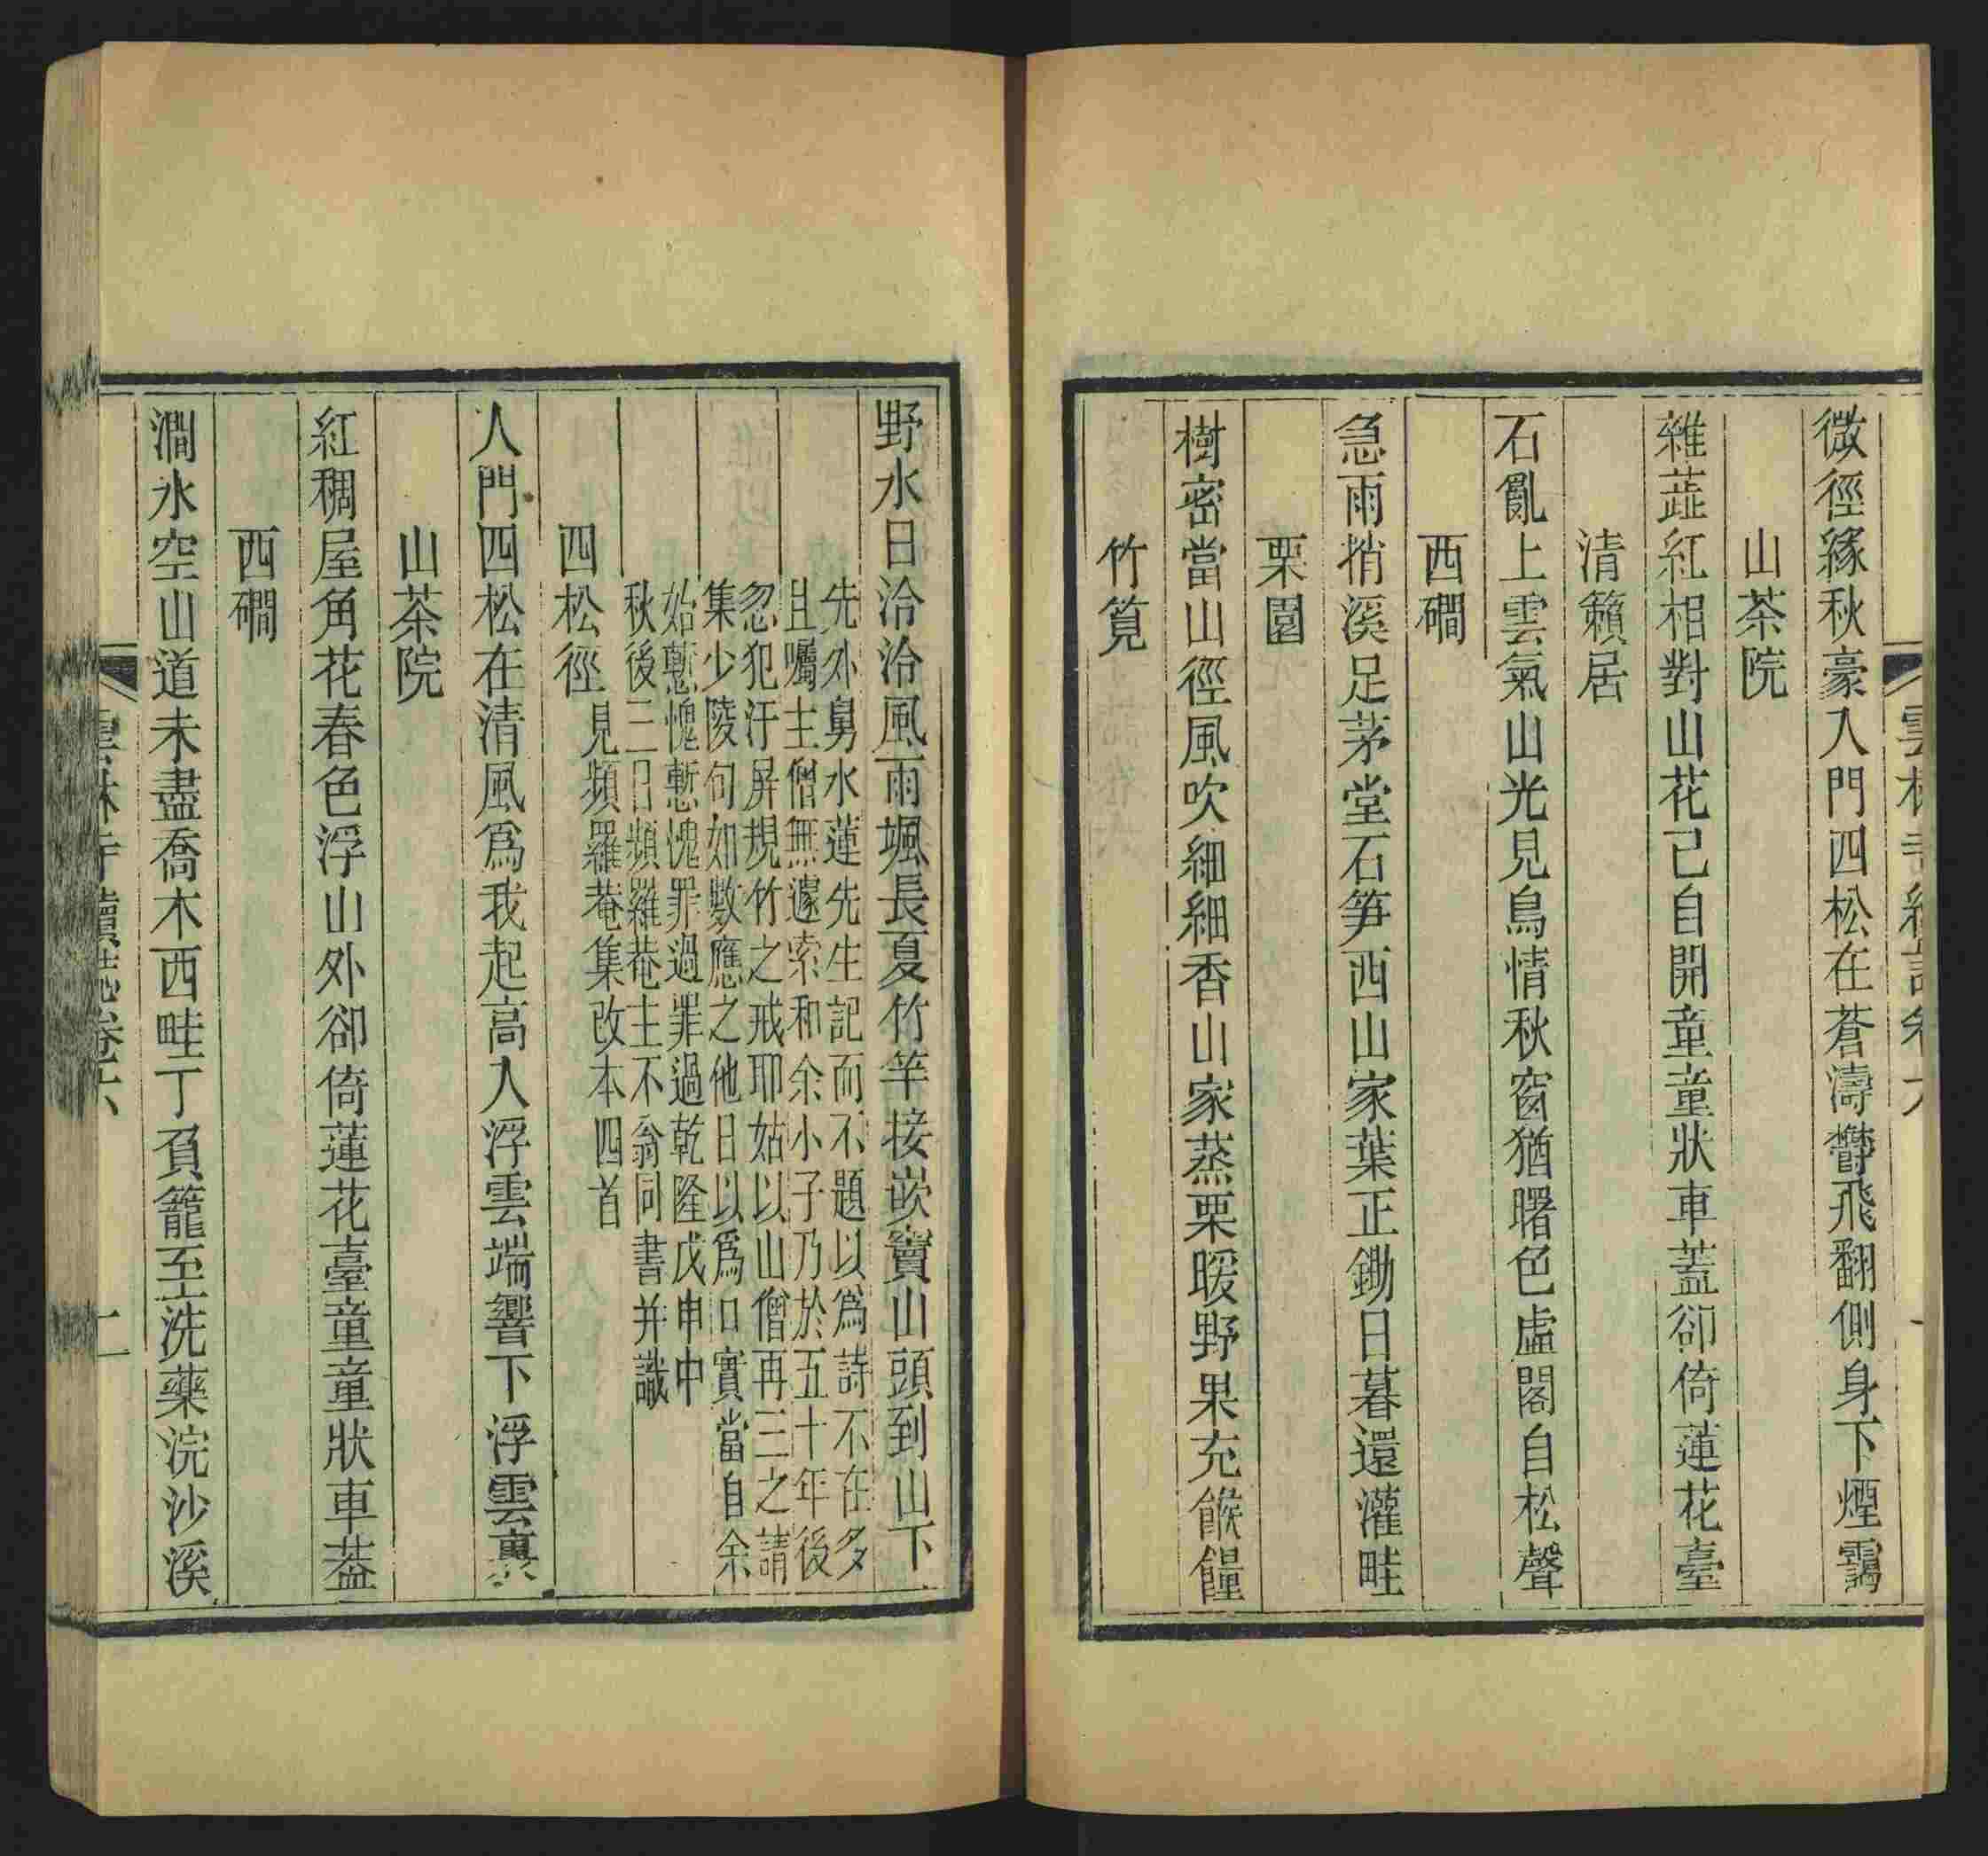 微徑緣秋豪入門四松在蒼濤鬱飛翻側身下煙靄
山茶院
雜蕋紅相對山花已自開童童狀車蓋卻倚蓮花臺
清籟居
石亂上雲氣山光見鳥情秋窗猶曙色虛閣自松聲
西磵
急雨捎溪足茅堂石笋西山家葉正鋤日暮還灌畦
栗園
樹密當山徑風吹細細香山家蒸栗暖野果充餱糧
竹筧
野水日泠泠風雨颯長夏竹竿接嵌竇山頭到山下
先外舅水蓮先生記而不題以爲詩不在多
且囑主僧無遽索和余小子乃於五十年後
忽犯汙屏規竹之戒耶姑以山僧再三之請
集少陵句如數應之他日以爲口實當自余
始慙愧慙愧罪過罪過乾隆戊申中
秋後三日頻羅菴主不翁同書并識
四松徑 見頻羅菴集改本四首
入門四松在清風爲我起高人浮雲端響下浮雲裏
山茶院
紅稠屋角花春色浮山外卻倚蓮花臺童童狀車葢
西磵
澗水空山道未盡喬木西畦丁負籠至洗藥浣沙溪
雲林寺續誌卷六
二